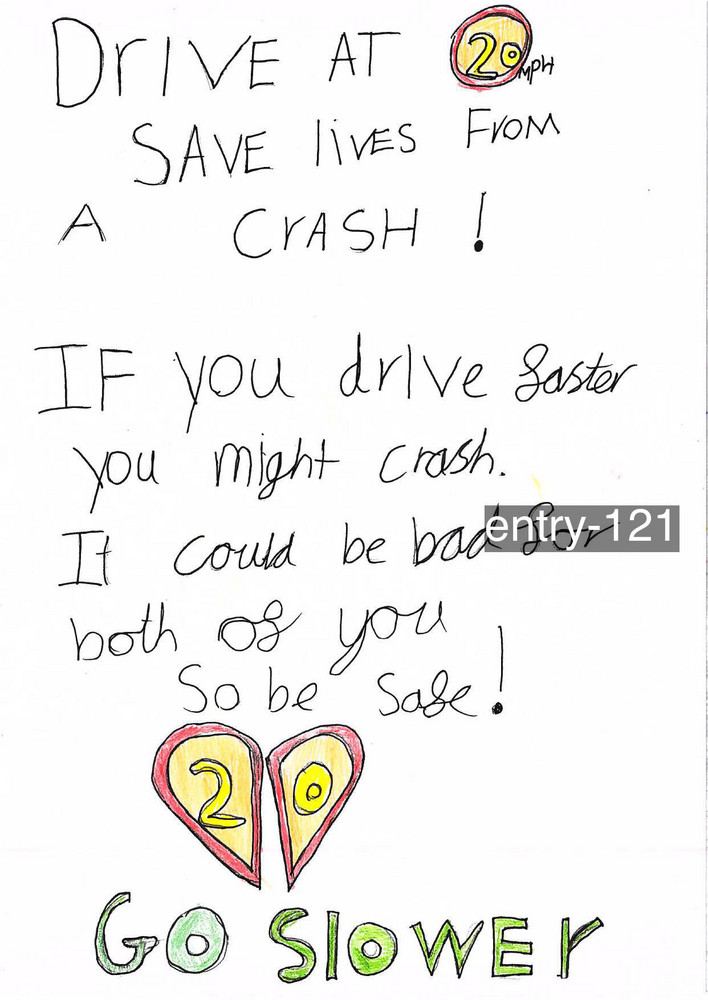 DrIVE AT 20 MPH
SAVE lives FROM
A CrASH !
IF you drIve faster
you might crash.
It could be bad for
entry-121
both of you
So be safe!
20
GO SlOWEr